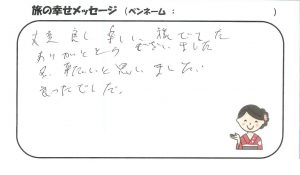 旅の幸せメッセージ (ペンネーム： )
大変良し楽しい、旅でした
ありがとうございました
又、来たいと思いました
良ったでした。